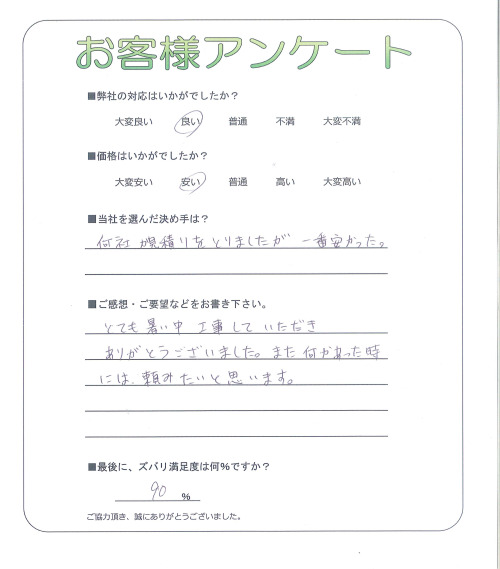 お客様アンケート
■弊社の対応はいかがでしたか？
大変良い 良い 普通 不満 大変不満
■価格はいかがでしたか？
大変安い 安い 普通 高い 大変高い
■当社を選んだ決め手は？
何社か見積りをとりましたが 一番安かった。
■ご感想・ご要望などをお書き下さい。
とても暑い中 工事して いただき
ありがとうございました。また何かあった時
には、頼みたいと思います。
■最後に、ズバリ満足度は何％ですか？
90 ％
ご協力頂き、誠にありがとうございました。